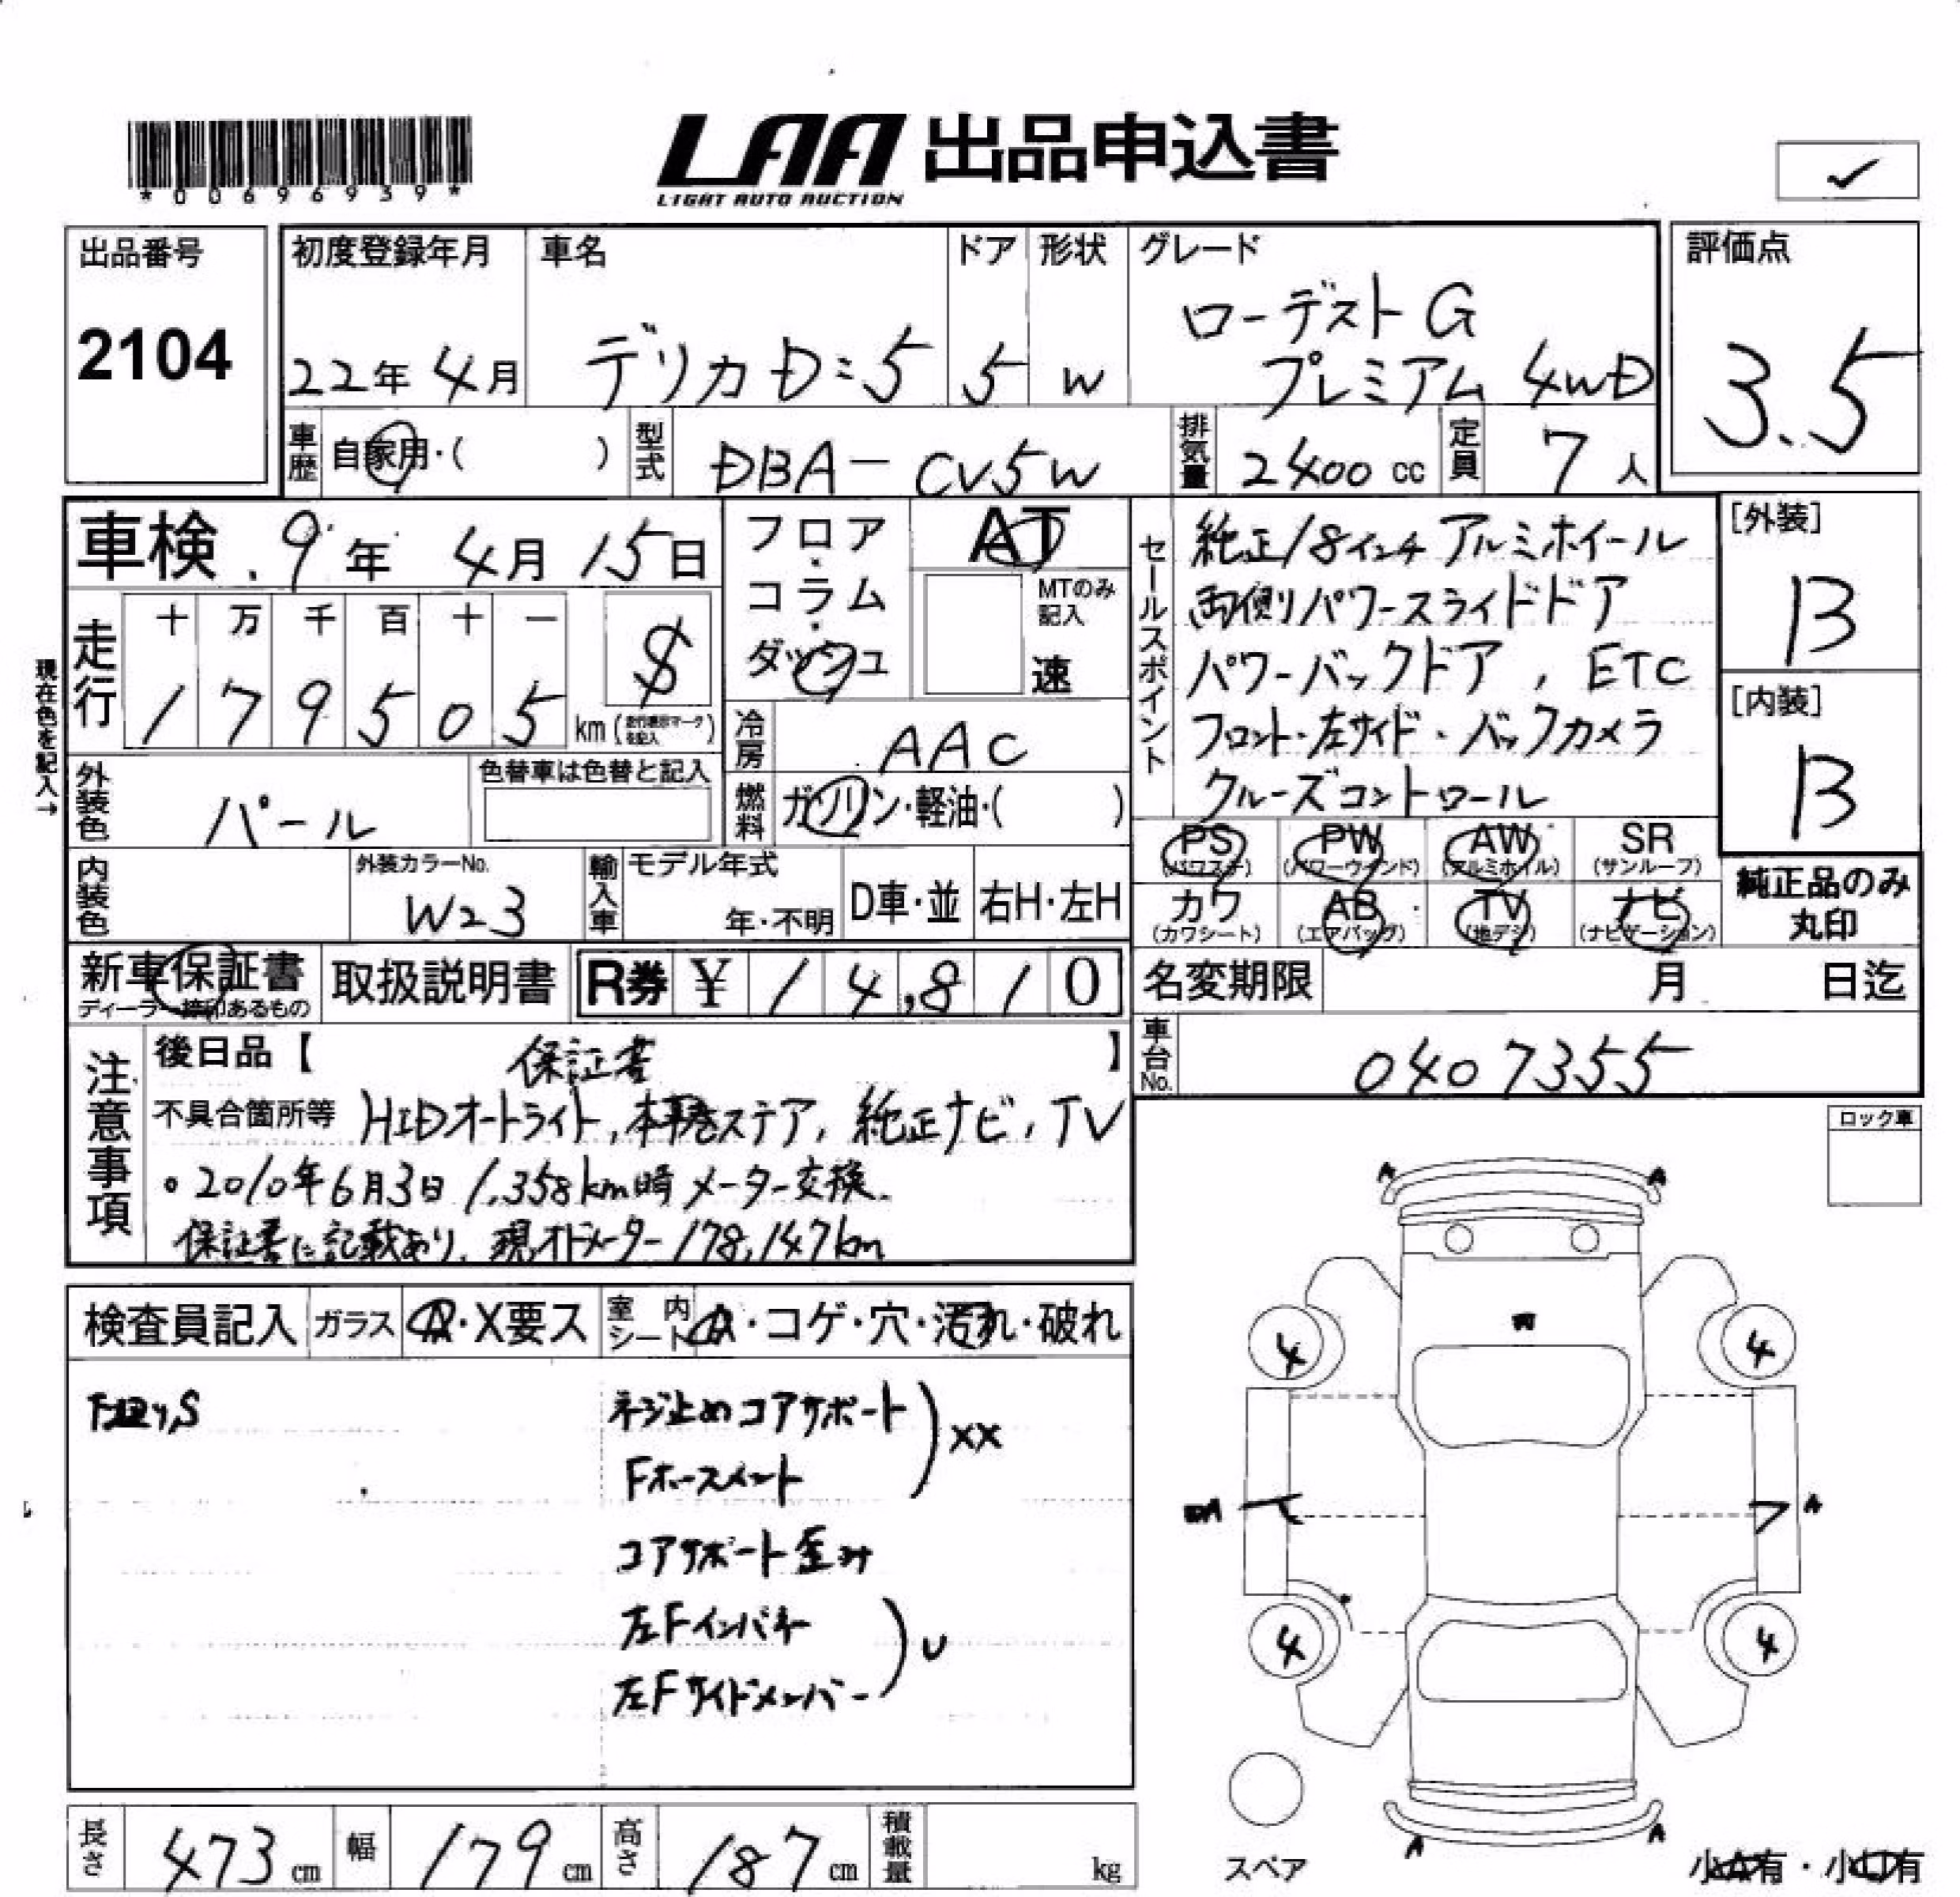 *0069639*
LAA 出品申込書
LIGHT AUTO AUCTION
✓
出品番号
2104
初度登録年月
22年 4月
車名
デリカD:5
ドア
5
形状
W
グレード
ローデストG
プレミアム 4WD
評価点
3.5
車歴 自家用・( )
型式 DBA-CV5W
排気量 2400 cc
定員 7 人
車検 9年 4月 15日
走行
十 万 千 百 十 一
1 7 9 5 0 5 km (走行表示マークを記入)
$
現在色を記入→
フロア・コラム・ダッシュ
AT
MTのみ記入
速
冷房 AAC
燃料 ガソリン・軽油・( )
外装色 パール
色替車は色替と記入
内装色
外装カラーNo.
W23
輸入車
モデル年式
年・不明
D車・並
右H・左H
セールスポイント
純正18インチ アルミホイール
両側パワースライドドア
パワーバックドア, ETC
フロント・左サイド・バックカメラ
クルーズコントロール
[外装]
B
[内装]
B
PS (パワステ)
PW (パワーウインド)
AW (アルミホイル)
SR (サンルーフ)
カワ (カワシート)
AB (エアバッグ)
TV (地デジ)
ナビ (ナビゲーション)
純正品のみ
丸印
新車保証書
ディーラー捺印あるもの
取扱説明書
R券 ¥ 14,810
名変期限 月 日迄
車台No. 0407355
注意事項
後日品【 保証書 】
不具合箇所等 HIDオートライト, 本革巻ステア, 純正ナビ, TV
。2010年6月3日 1,358km時メーター交換.
保証書に記載あり, 現オドメーター178,147km
ロック車
検査員記入
ガラス A・X要ス
室内シート A・コゲ・穴・汚れ・破れ
ネジ止めコアサポート
Fホースメント
XX
コアサポート歪み
左Fインパネ
左Fサイドメンバー
U
A A
4 4
A
4 4
A A
スペア
小A有・小U有
長さ 473 cm
幅 179 cm
高さ 187 cm
積載量 kg